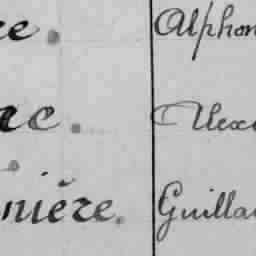 ee. Alphon
ac. Alexa
nière. Guillau